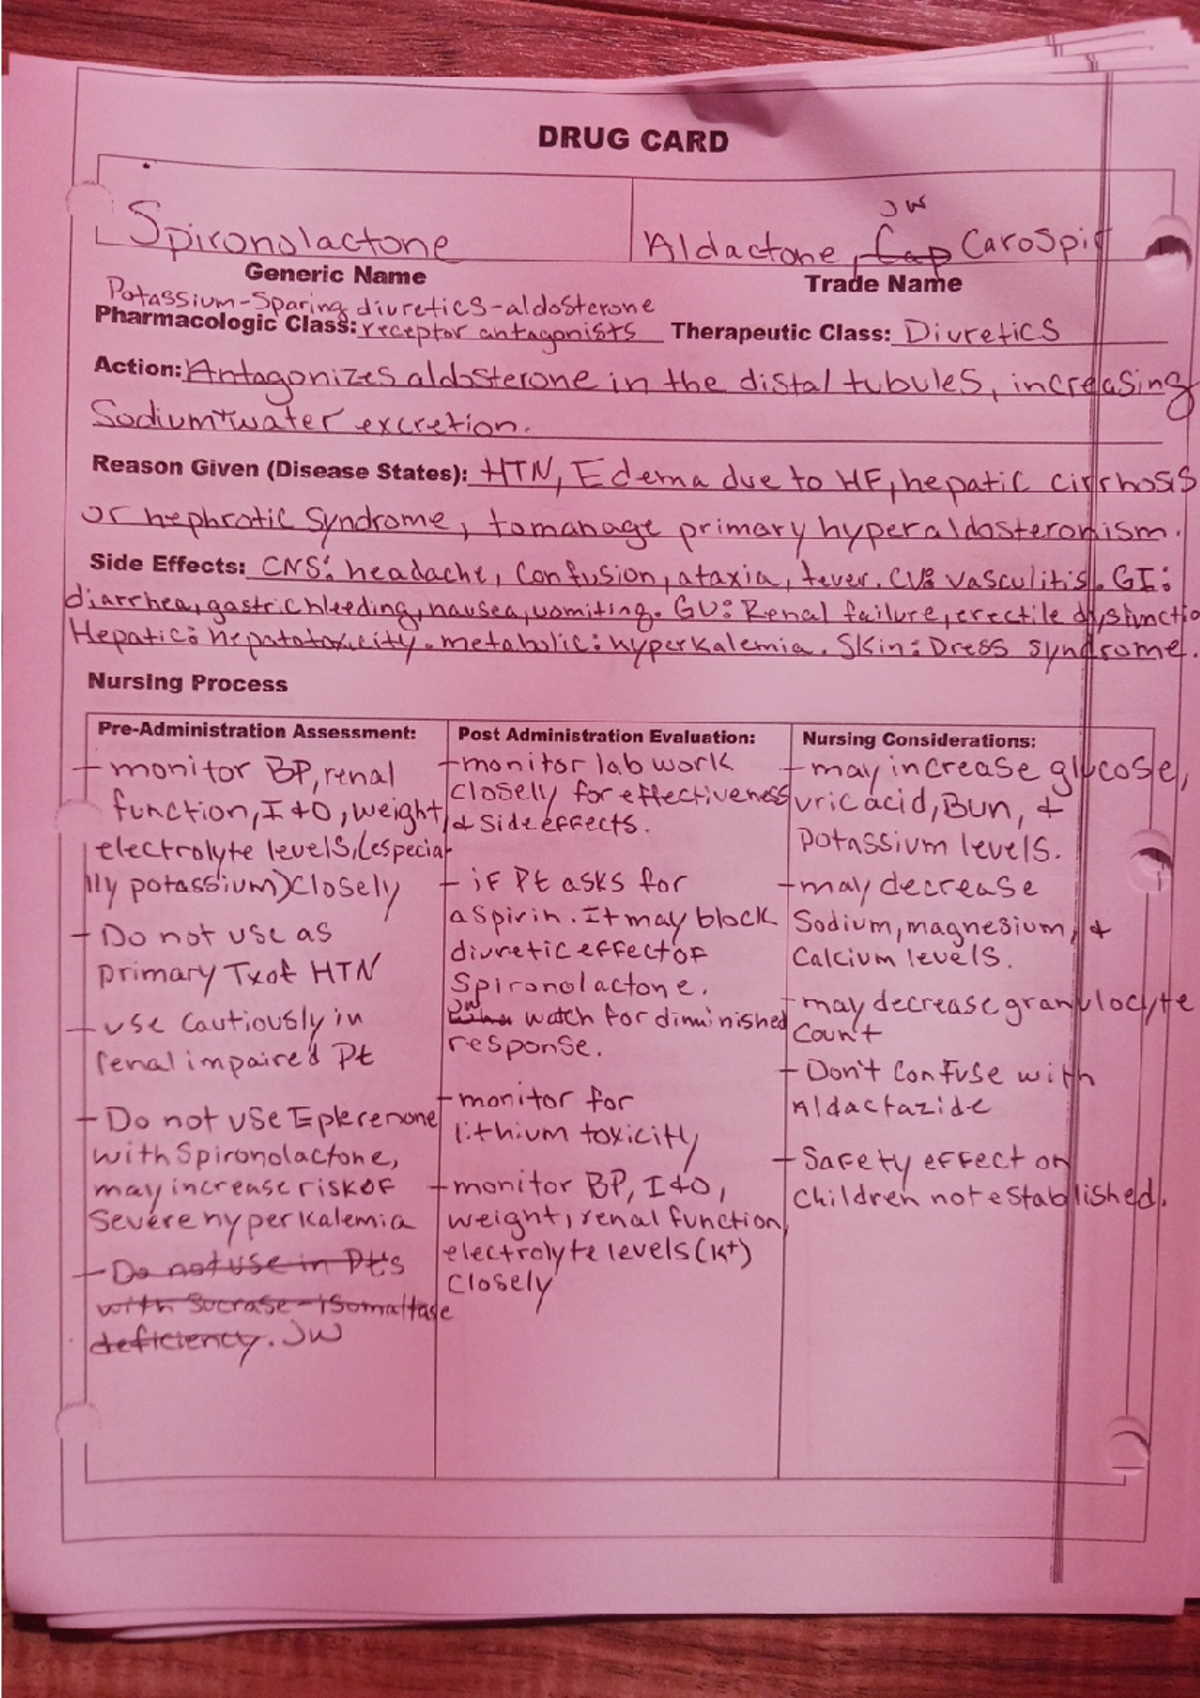 DRUG CARD
JW
Spironolactone
Aldactone, Cap CaroSpir
Generic Name
Trade Name
Potassium-Sparing diuretics-aldosterone
Pharmacologic Class: receptor antagonists Therapeutic Class: Diuretics
Action: Antagonizes aldosterone in the distal tubules, increasing
Sodium + water excretion.
Reason Given (Disease States): HTN, Edema due to HF, hepatic cirrhosis
or nephrotic syndrome, to manage primary hyperaldosteronism.
Side Effects: CNS: headache, Confusion, ataxia, fever. CV: vasculitis. GI:
diarrhea, gastric bleeding, nausea, vomiting. GU: Renal failure, erectile dysfunctio
Hepatic: hepatotoxicity. metabolic: hyperkalemia. Skin: Dress syndrome.
Nursing Process
Pre-Administration Assessment:
- monitor BP, renal
function, I+O, weight,
electrolyte levels, (especia-
lly potassium) Closely
- Do not use as
primary Tx of HTN
- use Cautiously in
renal impaired Pt
- Do not use Eplerenone
with Spironolactone,
may increase risk of
Severe hyperkalemia
- Do not use in Pt's
with Sucrase-isomaltase
deficiency. JW
Post Administration Evaluation:
- monitor lab work
Closely for effectiveness
& side effects.
- if Pt asks for
aspirin. It may block
diuretic effect of
Spironolactone.
JW
watch for diminished
response.
- monitor for
lithium toxicity
- monitor BP, I+O,
weight, renal function,
electrolyte levels (K+)
Closely
Nursing Considerations:
- may increase glucose,
uric acid, Bun, &
Potassium levels.
- may decrease
Sodium, magnesium, &
Calcium levels.
- may decrease granulocyte
Count
- Don't Confuse with
Aldactazide
- Safety effect on
Children not established.